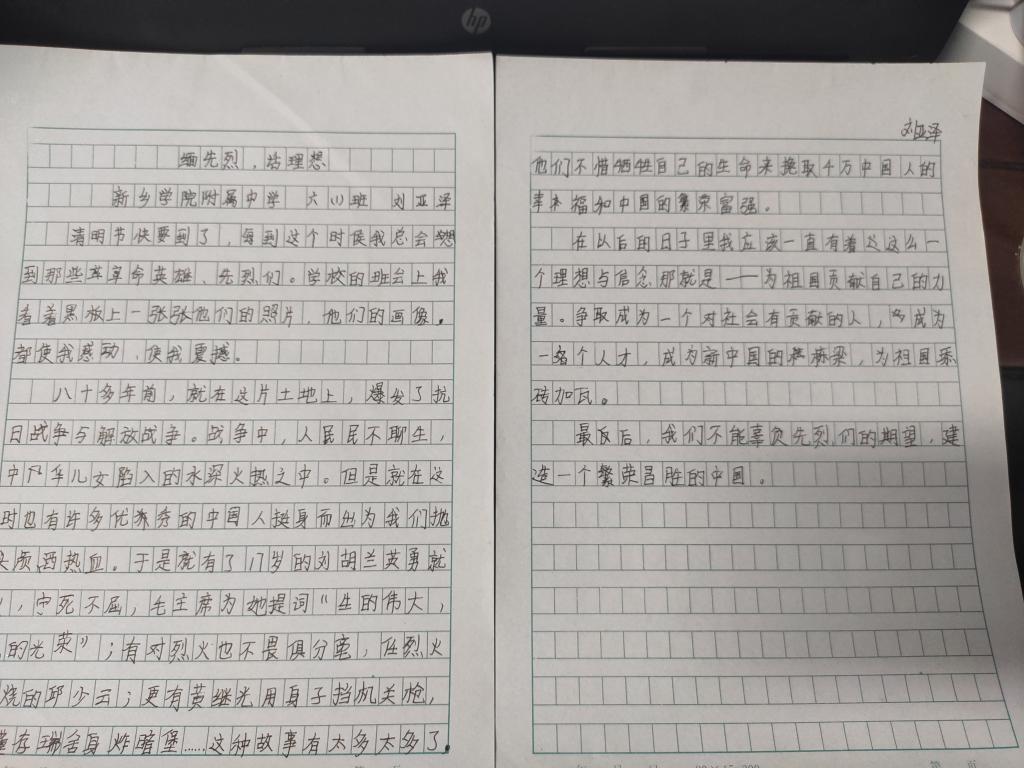 hp
缅先烈，话理想
新乡学院附属中学 六(1)班 刘亚泽
清明节快要到了，每到这个时候我总会想
到那些革命英雄、先烈们。学校的班会上我
看着黑板上一张张他们的照片，他们的画像，
都使我感动，使我震撼。
八十多年前，就在这片土地上，爆发了抗
日战争与解放战争。战争中，人民民不聊生，
中华儿女陷入的水深火热之中。但是就在这
时也有许多优秀的中国人挺身而出为我们抛
头颅洒热血。于是就有了17岁的刘胡兰英勇就
，宁死不屈，毛主席为她提词“生的伟大，
的光荣”；有对烈火也不畏俱分毫，任烈火
烧的邱少云；更有黄继光用身子挡机关枪，
存瑞舍身炸暗堡……这种故事有太多太多了，
刘亚泽
他们不惜牺牲自己的生命来换取千万中国人的
幸福和中国的繁荣富强。
在以后的日子里我应该一直有着这么一
个理想与信念那就是——为祖国贡献自己的力
量。争取成为一个对社会有贡献的人，成为
一名个人才，成为新中国的栋梁，为祖国添
砖加瓦。
最后，我们不能辜负先烈们的期望，建
造一个繁荣昌胜的中国。
第 页